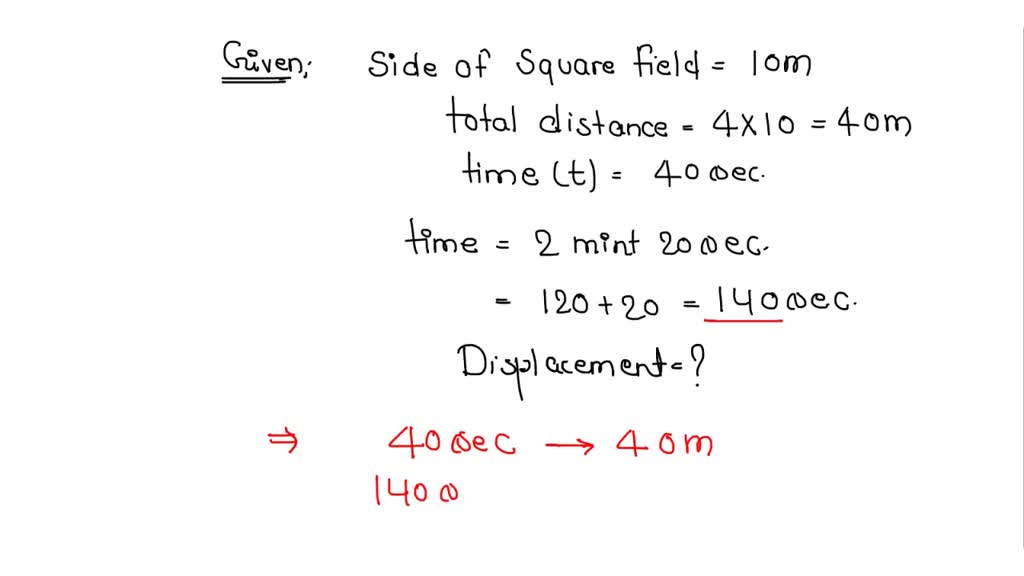 Given; Side of Square field = 10m
total distance = 4X10 = 40m
time (t) = 40 sec.
time = 2 mint 20 sec.
= 120 + 20 = 140 sec.
Displacement = ?
⇒ 40 sec → 40m
140 s